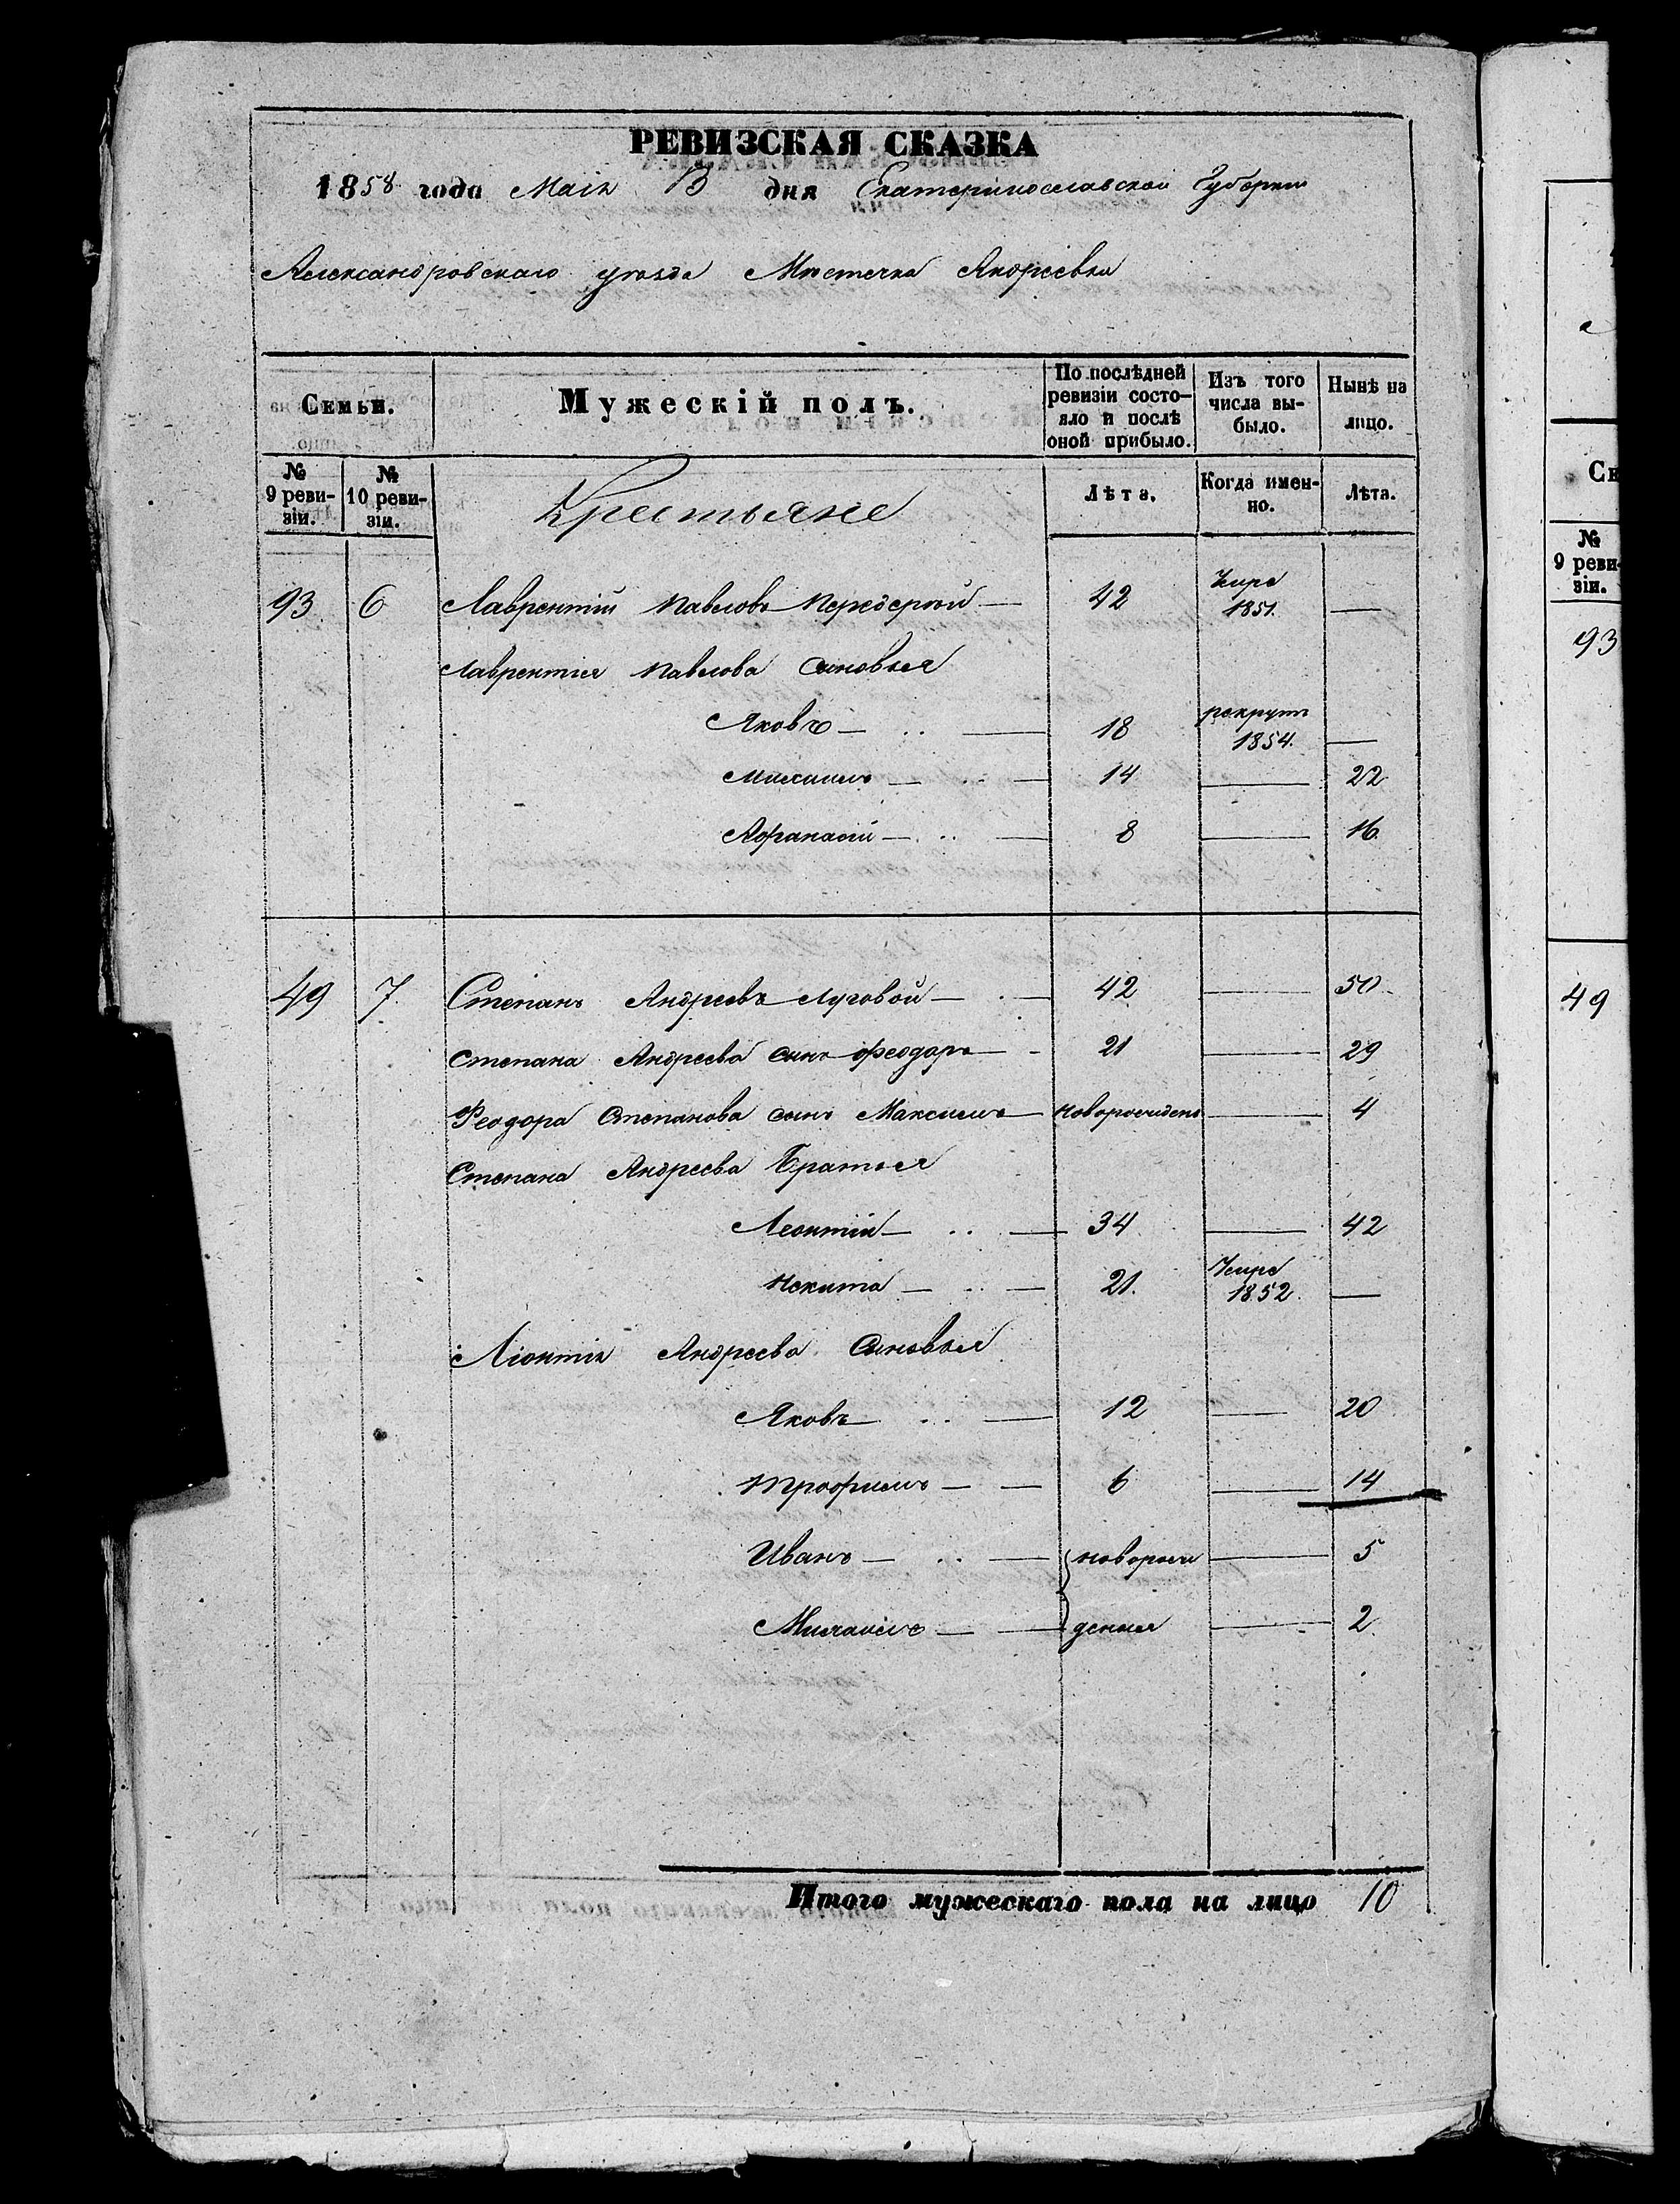 РЕВИЗСКАЯ СКАЗКА
1858 года Маія 13 дня Екатеринославской Губерніи
Александровскаго уезда Местечка Андреевки
Семьи.
Мужескій полъ.
По послѣдней ревизіи состо-
яло и послѣ
оной прибыло.
Изъ того
числа вы-
было.
Нынѣ на
лицо.
№
9 реви-
зіи.
№
10 реви-
зіи.
Крестьяне
Лѣта.
Когда имен-
но.
Лѣта.
93 6 Лаврентій Павловъ Передерній — 42 Умре 1851. —
Лаврентія Павлова сыновья
Яковъ — 18 рекрутъ 1854. —
Михаилъ — 14 — 22
Афанасій — 8 — 16
49 7. Степанъ Андреевъ Луговой — 42 — 50
Степана Андреева сынъ Феодоръ — 21 — 29
Феодора Степанова сынъ Максимъ — новорожденъ — 4
Степана Андреева Братья
Леонтій — 34 — 42
Никита — 21. Умре 1852. —
Ліонтія Андреева Сыновья
Яковъ — 12 — 20
Трофимъ — 6 — 14
Иванъ — новорож — 5
Михаилъ — денныя — 2
Итого мужескаго пола на лицо 10
Се
№
9 реви-
зіи.
93
49